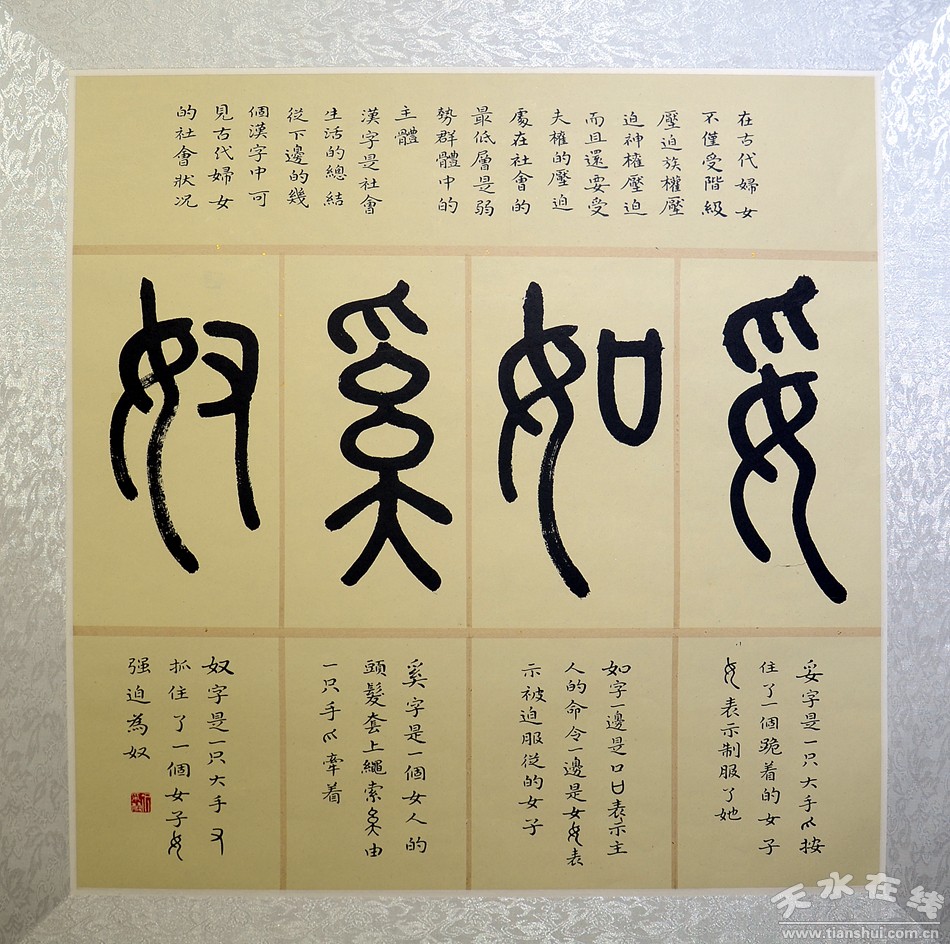 在古代婦女
不僅受階級
壓迫族權壓
迫神權壓迫
而且還要受
夫權的壓迫
處在社會的
最低層是弱
勢群體中的
主體
漢字是社會
生活的總結
從下邊的幾
個漢字中可
見古代婦女
的社會狀况
妥
如
奚
奴
妥字是一只大手爪按
住了一個跪着的女子
女表示制服了她
如字一邊是口口表示主
人的命令一邊是女女表
示被迫服從的女子
奚字是一個女人的
頭髮套上繩索由
一只手爪牽着
奴字是一只大手又
抓住了一個女子女
强迫為奴
天水在线
www.tianshui.com.cn